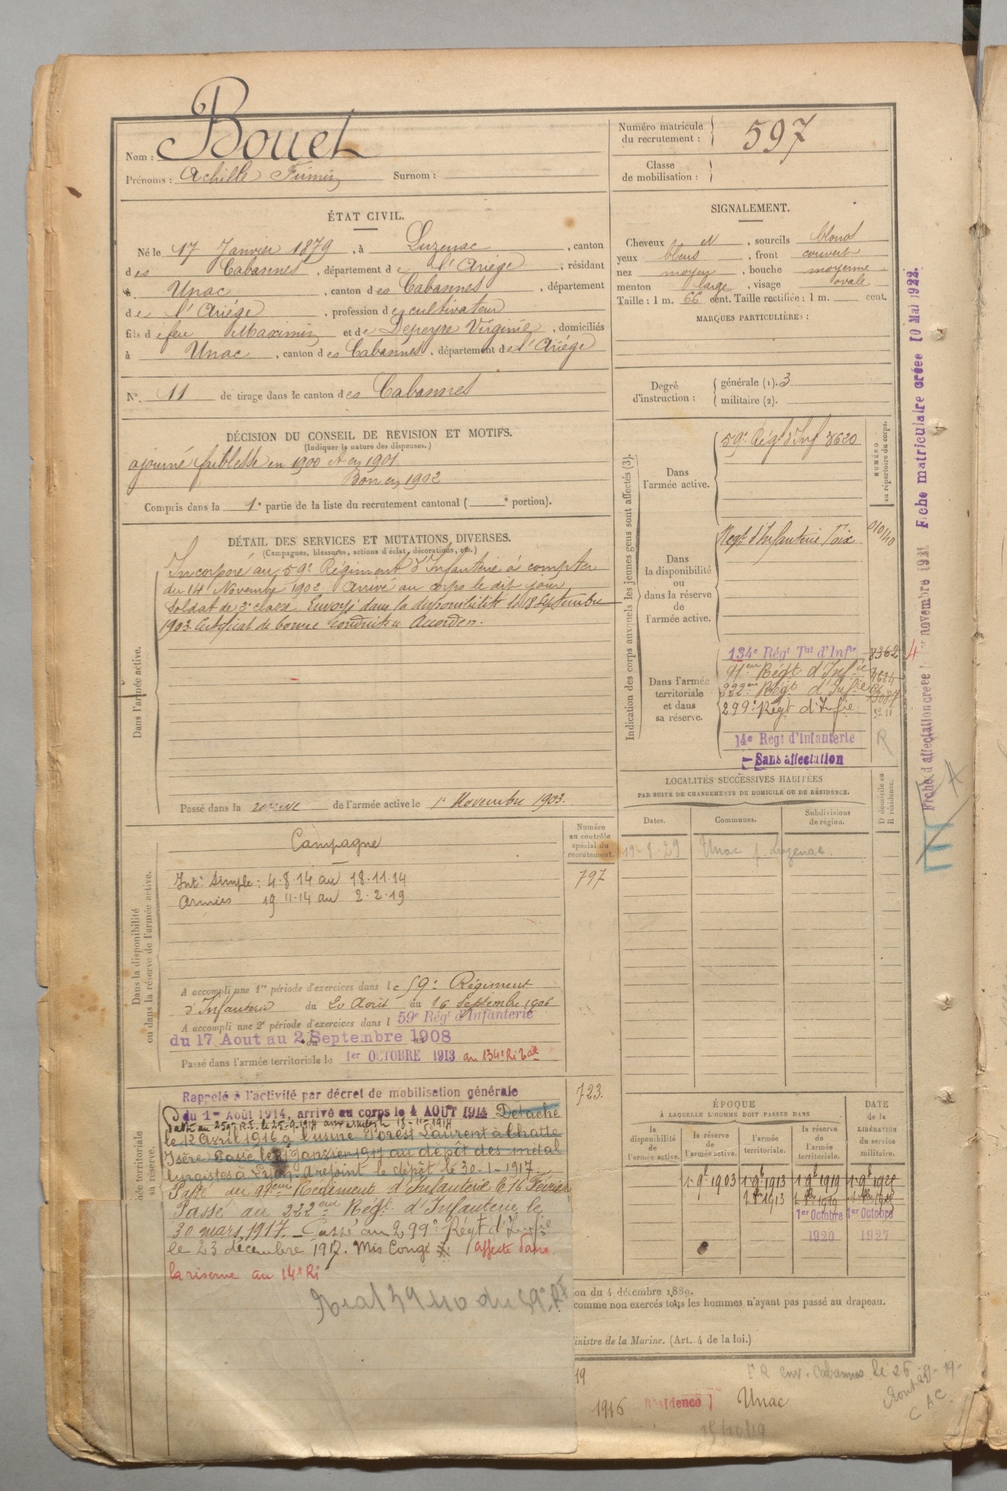 Nom : Bouet
Prénoms : Achille Firmin Surnom :
Numéro matricule du recrutement : 597
Classe de mobilisation :
ÉTAT CIVIL.
Né le 17 Janvier 1879, à Luzenac, canton
des Cabannes, département de l'Ariége, résidant
à Unac, canton des Cabannes, département
de l'Ariége, profession de cultivateur
fils de feu Maximin et de Depeyre Virginie, domiciliés
à Unac, canton des Cabannes, département de l'Ariége
N° 11 de tirage dans le canton des Cabannes
SIGNALEMENT.
Cheveux et sourcils blonds
yeux bleus, front couvert
nez moyen, bouche moyenne
menton large, visage ovale
Taille : 1 m. 66 cent. Taille rectifiée : 1 m. cent.
MARQUES PARTICULIÈRES :
Degré d'instruction : générale (1). 3
militaire (2).
DÉCISION DU CONSEIL DE REVISION ET MOTIFS.
(Indiquer la nature des dispenses.)
ajourné faiblesse en 1900 et en 1901
Bon en 1902
Compris dans la 1e partie de la liste du recrutement cantonal ( e portion).
DÉTAIL DES SERVICES ET MUTATIONS DIVERSES.
(Campagnes, blessures, actions d'éclat, décorations, etc.)
Dans l'armée active.
Incorporé au 59e Régiment d'Infanterie à compter
du 14 Novembre 1902 Arrivé au corps le dit jour
soldat de 2e classe. Envoyé dans la disponibilité le 18 Septembre
1903. Certificat de bonne conduite Accordé.
Passé dans la réserve de l'armée active le 1er Novembre 1903.
Indication des corps auxquels les jeunes gens sont affectés (3).
NUMÉRO au répertoire du corps.
Dans l'armée active.
59e Régt d'Inf 3620
Dans la disponibilité ou dans la réserve de l'armée active.
Régt d'Infanterie Foix
Dans l'armée territoriale et dans sa réserve.
134e Régt Tal d'Infie 8362
91eme Régt d'Infie
222eme Régt d'Infie
299e Régt d'Infie
14e Régt d'Infanterie R
Sans affectation
Fiche matriculaire créée 10 Mai 1922.
LOCALITÉS SUCCESSIVES HABITÉES
PAR SUITE DE CHANGEMENTS DE DOMICILE OU DE RÉSIDENCE.
Dates. Communes. Subdivisions de région. D domicile ou R résidence.
Unac p. Luzenac
Dans la disponibilité ou dans la réserve de l'armée active.
Numéro au contrôle spécial du recrutement.
797
Campagne
Intre simple : 4.8.14 au 18.11.14
Armées 19.11.14 au 2.2.19
A accompli une 1re période d'exercices dans le 59e Régiment
d'Infanterie du 20 Août au 16 Septembre 1906
A accompli une 2e période d'exercices dans l 59e Régt d'Infanterie
du 17 Aout au 2 Septembre 1908
Passé dans l'armée territoriale le 1er OCTOBRE 1913 au 134e Ri tal
723
Rappelé à l'activité par décret de mobilisation générale
du 1er Août 1914, arrivé au corps le 4 AOUT 1914 Détaché
le 12 Avril 1916 à l'usine Forest Laurent à Chatte
Isère Passé le 21 Janvier 1917 au dépôt des métal
lurgistes à Lyon. A rejoint le dépôt le 30-1-1917.
Passé au 91eme Régiment d'Infanterie le 16 Février
Passé au 222eme Régt d'Infanterie le
30 mars 1917. Passé au 299e Régt d'Infie
le 23 décembre 1917. Mis Congé Affecté dans
la réserve au 14e Ri
ÉPOQUE
À LAQUELLE L'HOMME DOIT PASSER DANS
DATE de la LIBÉRATION du service militaire.
la disponibilité de l'armée active. la réserve de l'armée active. l'armée territoriale. la réserve de l'armée territoriale.
1er 9bre 1903 1er 9bre 1913 1er 9bre 1919
1er Octobre 1920 1er Octobre 1927
on du 4 décembre 1889.
comme non exercés tous les hommes n'ayant pas passé au drapeau.
inistre de la Marine. (Art. 4 de la loi.)
1916 Résidence Unac
15/10/19